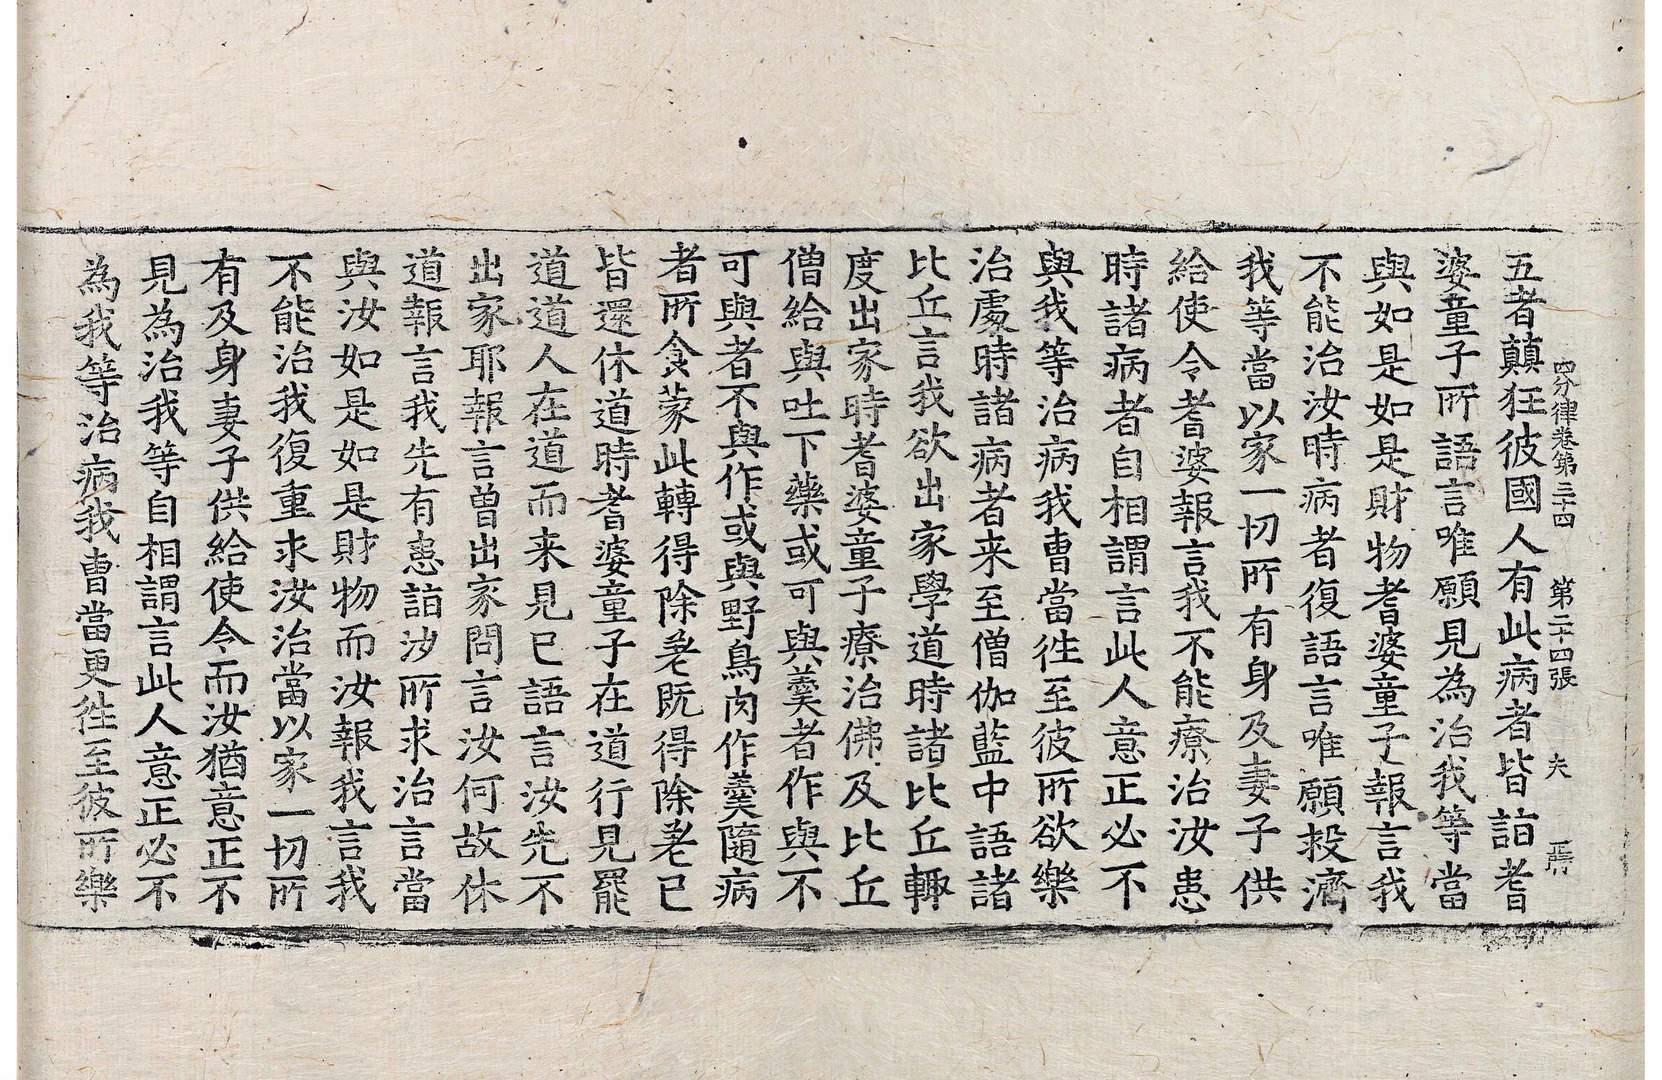 四分律卷第三十四 第二十四張 夫
五者顛狂彼國人有此病者皆詣耆
婆童子所語言唯願見為治我等當
與如是如是財物耆婆童子報言我
不能治汝時病者復語言唯願投濟
我等當以家一切所有身及妻子供
給使令耆婆報言我不能療治汝患
時諸病者自相謂言此人意正必不
與我等治病我曹當往至彼所欲樂
治處時諸病者来至僧伽藍中語諸
比丘言我欲出家學道時諸比丘輙
度出家時耆婆童子療治佛及比丘
僧給與吐下藥或可與羹者作與不
可與者不與作或與野鳥肉作羹隨病
者所食蒙此轉得除差既得除差已
皆還休道時耆婆童子在道行見罷
道道人在道而来見已語言汝先不
出家耶報言曾出家問言汝何故休
道報言我先有患詣汝所求治言當
與汝如是如是財物而汝報我言我
不能治我復重求汝治當以家一切所
有及身妻子供給使令而汝猶意正不
見為治我等自相謂言此人意正必不
為我等治病我曹當更往至彼所樂